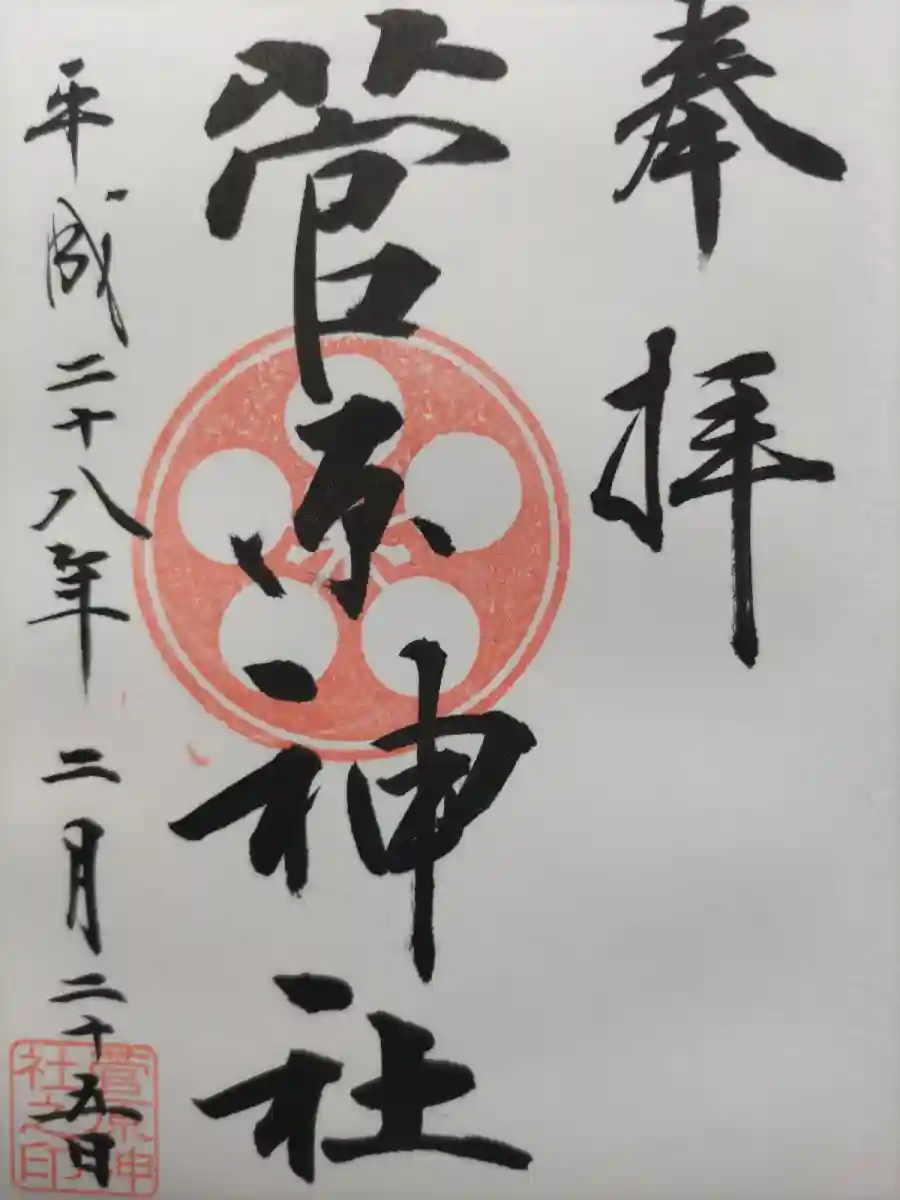 奉拝
菅原神社
平成二十八年二月二十五日
菅原神
社之印